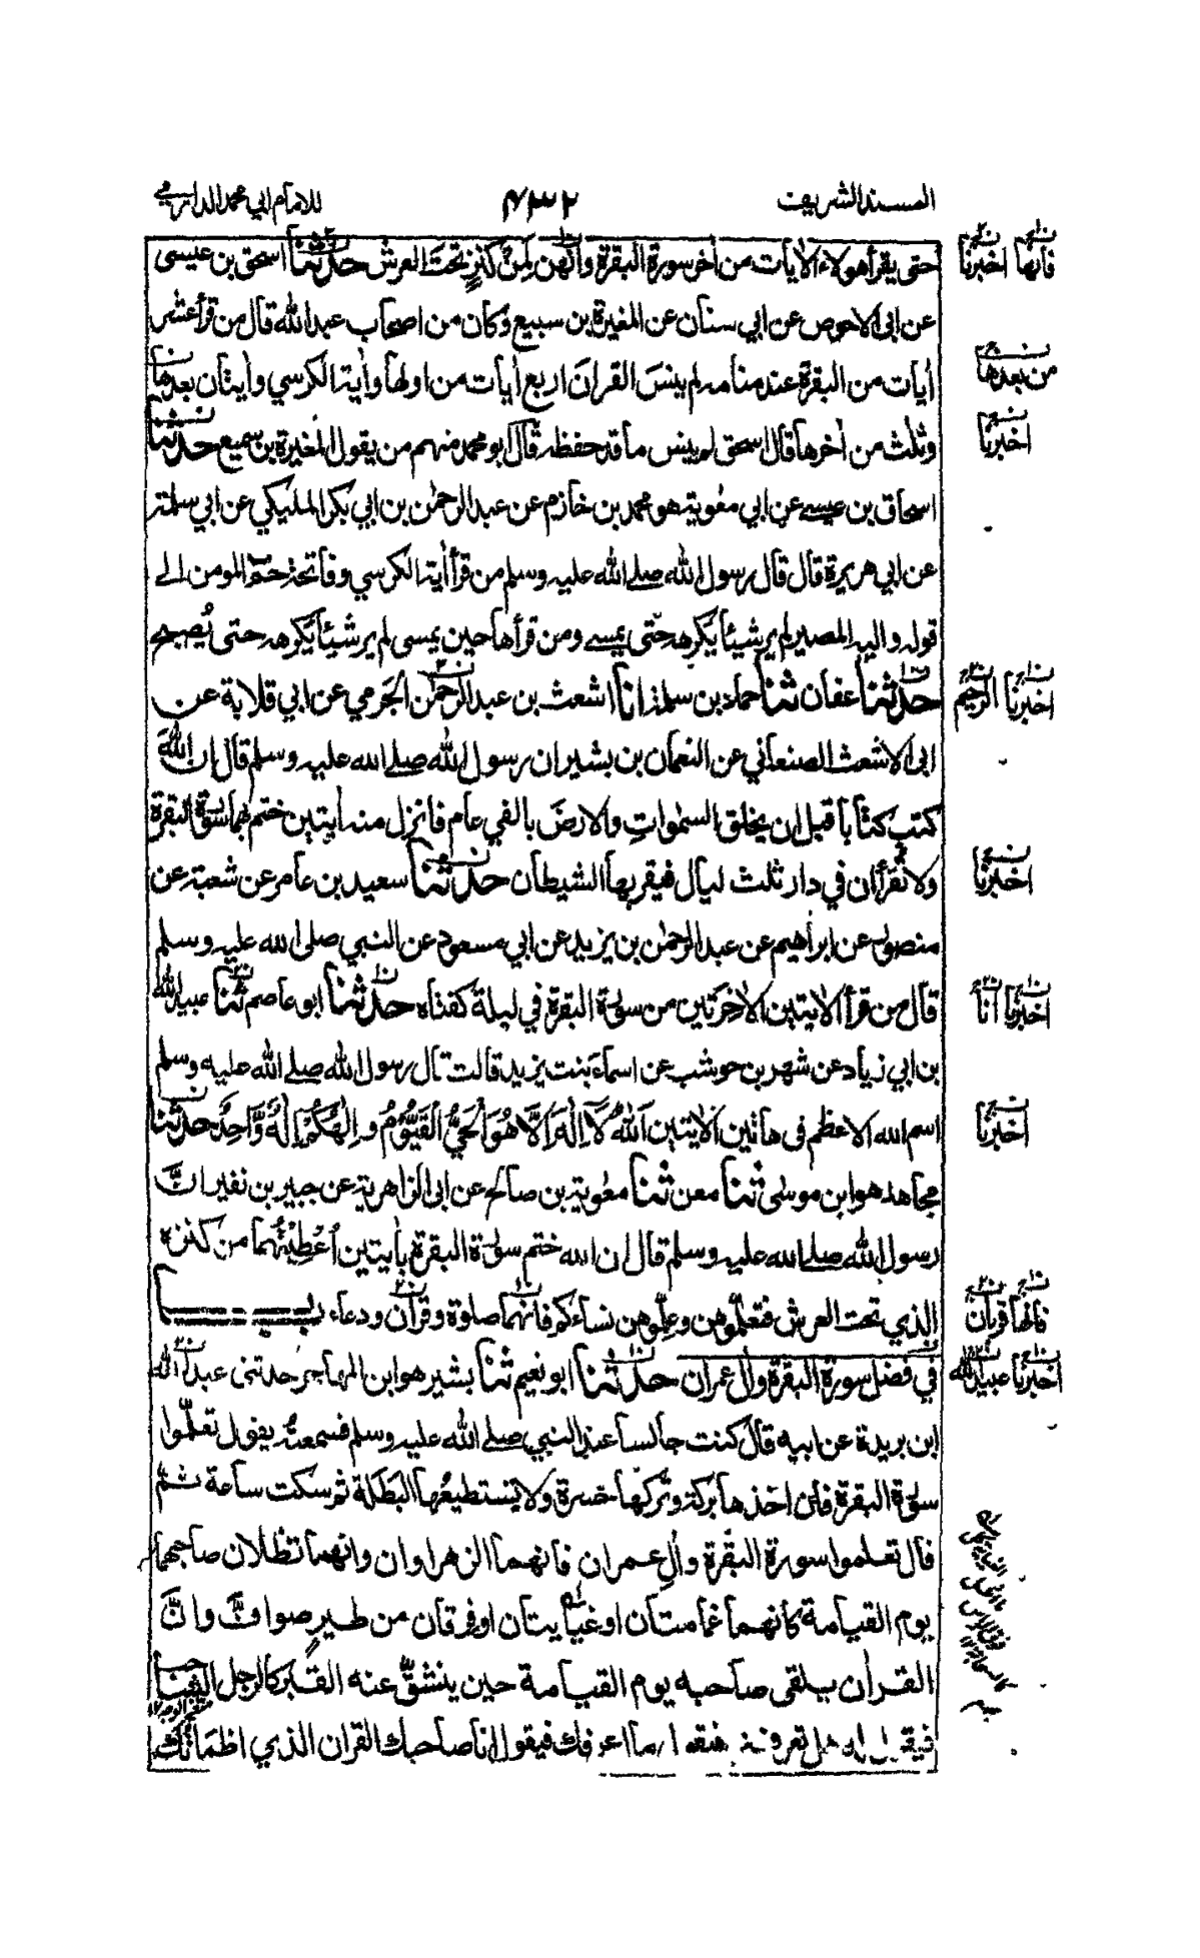 المسند الشريف ٤٣٢ للامام ابي محمد الدارمي
حتى يقرأ هولاء الأيات من أخر سورة البقرة وانهن لمن كنز تحت العرش حدثنا اسحق بن عيسى
عن ابى الاحوص عن ابي سنان عن المغيرة بن سبيع وكان من اصحاب عبد الله قال من قرأ عشر
أيات من البقرة عند منامه لم ينس القران اربع أيات من اولها وأية الكرسي وأيتان بعدها
وثلث من أخرها قال اسحق لم ينس ما قد حفظه قال ابو محمد منهم من يقول المغيرة بن سميع حدثنا
اسحاق بن عيسے عن ابي معوية هو محمد بن خازم عن عبد الرحمن بن ابي بكر المليكي عن ابي سلمة
عن ابي هريرة قال قال رسول الله صلے الله عليه وسلم من قرأ أية الكرسي وفاتحة حم المومن الے
قوله واليه المصير لم ير شيئا يكرهه حتى يمسے ومن قرأها حين يمسى لم ير شيئا يكرهه حتى يصبح
حدثنا عفان ثنا حماد بن سلمة انا اشعث بن عبد الرحمن الجرمي عن ابي قلابة عن
ابى الاشعث الصنعاني عن النعمان بن بشير ان رسول الله صلے الله عليه وسلم قال ان الله
كتب كتابا قبل ان يخلق السموات والارض بالفي عام فانزل منه أيتين ختم بهما سورة البقرة
ولا تقرأن في دار ثلث ليال فيقربها الشيطان حدثنا سعيد بن عامر عن شعبة عن
منصور عن ابراهيم عن عبد الرحمن بن يزيد عن ابي مسعود عن النبي صلى الله عليه وسلم
قال من قرأ الايتين الأخرتين من سورة البقرة في ليلة كفتاه حدثنا ابو عاصم ثنا عبيد الله
بن ابي زياد عن شهر بن حوشب عن اسماء بنت يزيد قالت قال رسول الله صلے الله عليه وسلم
اسم الله الاعظم فى هاتين الأيتين الله لا اله الا هو الحي القيوم و الهكم اله واحد حدثنا
مجاهد هو ابن موسى ثنا معن ثنا معوية بن صالح عن ابى الزاهرية عن جبير بن نفير ان
رسول الله صلے الله عليه وسلم قال ان الله ختم سورة البقرة بأيتين اعطيتهما من كنزه
الذي تحت العرش فتعلموهن وعلموهن نساءكم فانهما صلوة وقرأن ودعاء باب
في فضل سورة البقرة وأل عمران حدثنا ابو نعيم ثنا بشير هو ابن المهاجر حدثنى عبد الله
ابن بريدة عن ابيه قال كنت جالسا عند النبي صلے الله عليه وسلم فسمعته يقول تعلموا
سورة البقرة فان اخذها بركة وتركها حسرة ولا يستطيعها البطلة ثم سكت ساعة ثم
قال تعلموا سورة البقرة وأل عمران فانهما الزهراوان وانهما تظلان صاحبهما
يوم القيامة كانهما غمامتان او غيايتان او فرقان من طير صواف وان
القران يلقى صاحبه يوم القيامة حين ينشق عنه القبر كالرجل الشاحب
فيقول له هل تعرفني فيقول ما اعرفك فيقول انا صاحبك القران الذي اظمأتك
فانها اخبرنا
من بعدها
اخبرنا
اخبرنا الرحيم
اخبرنا
اخبرنا انا
اخبرنا
فانها قربان
اخبرنا عبيد الله